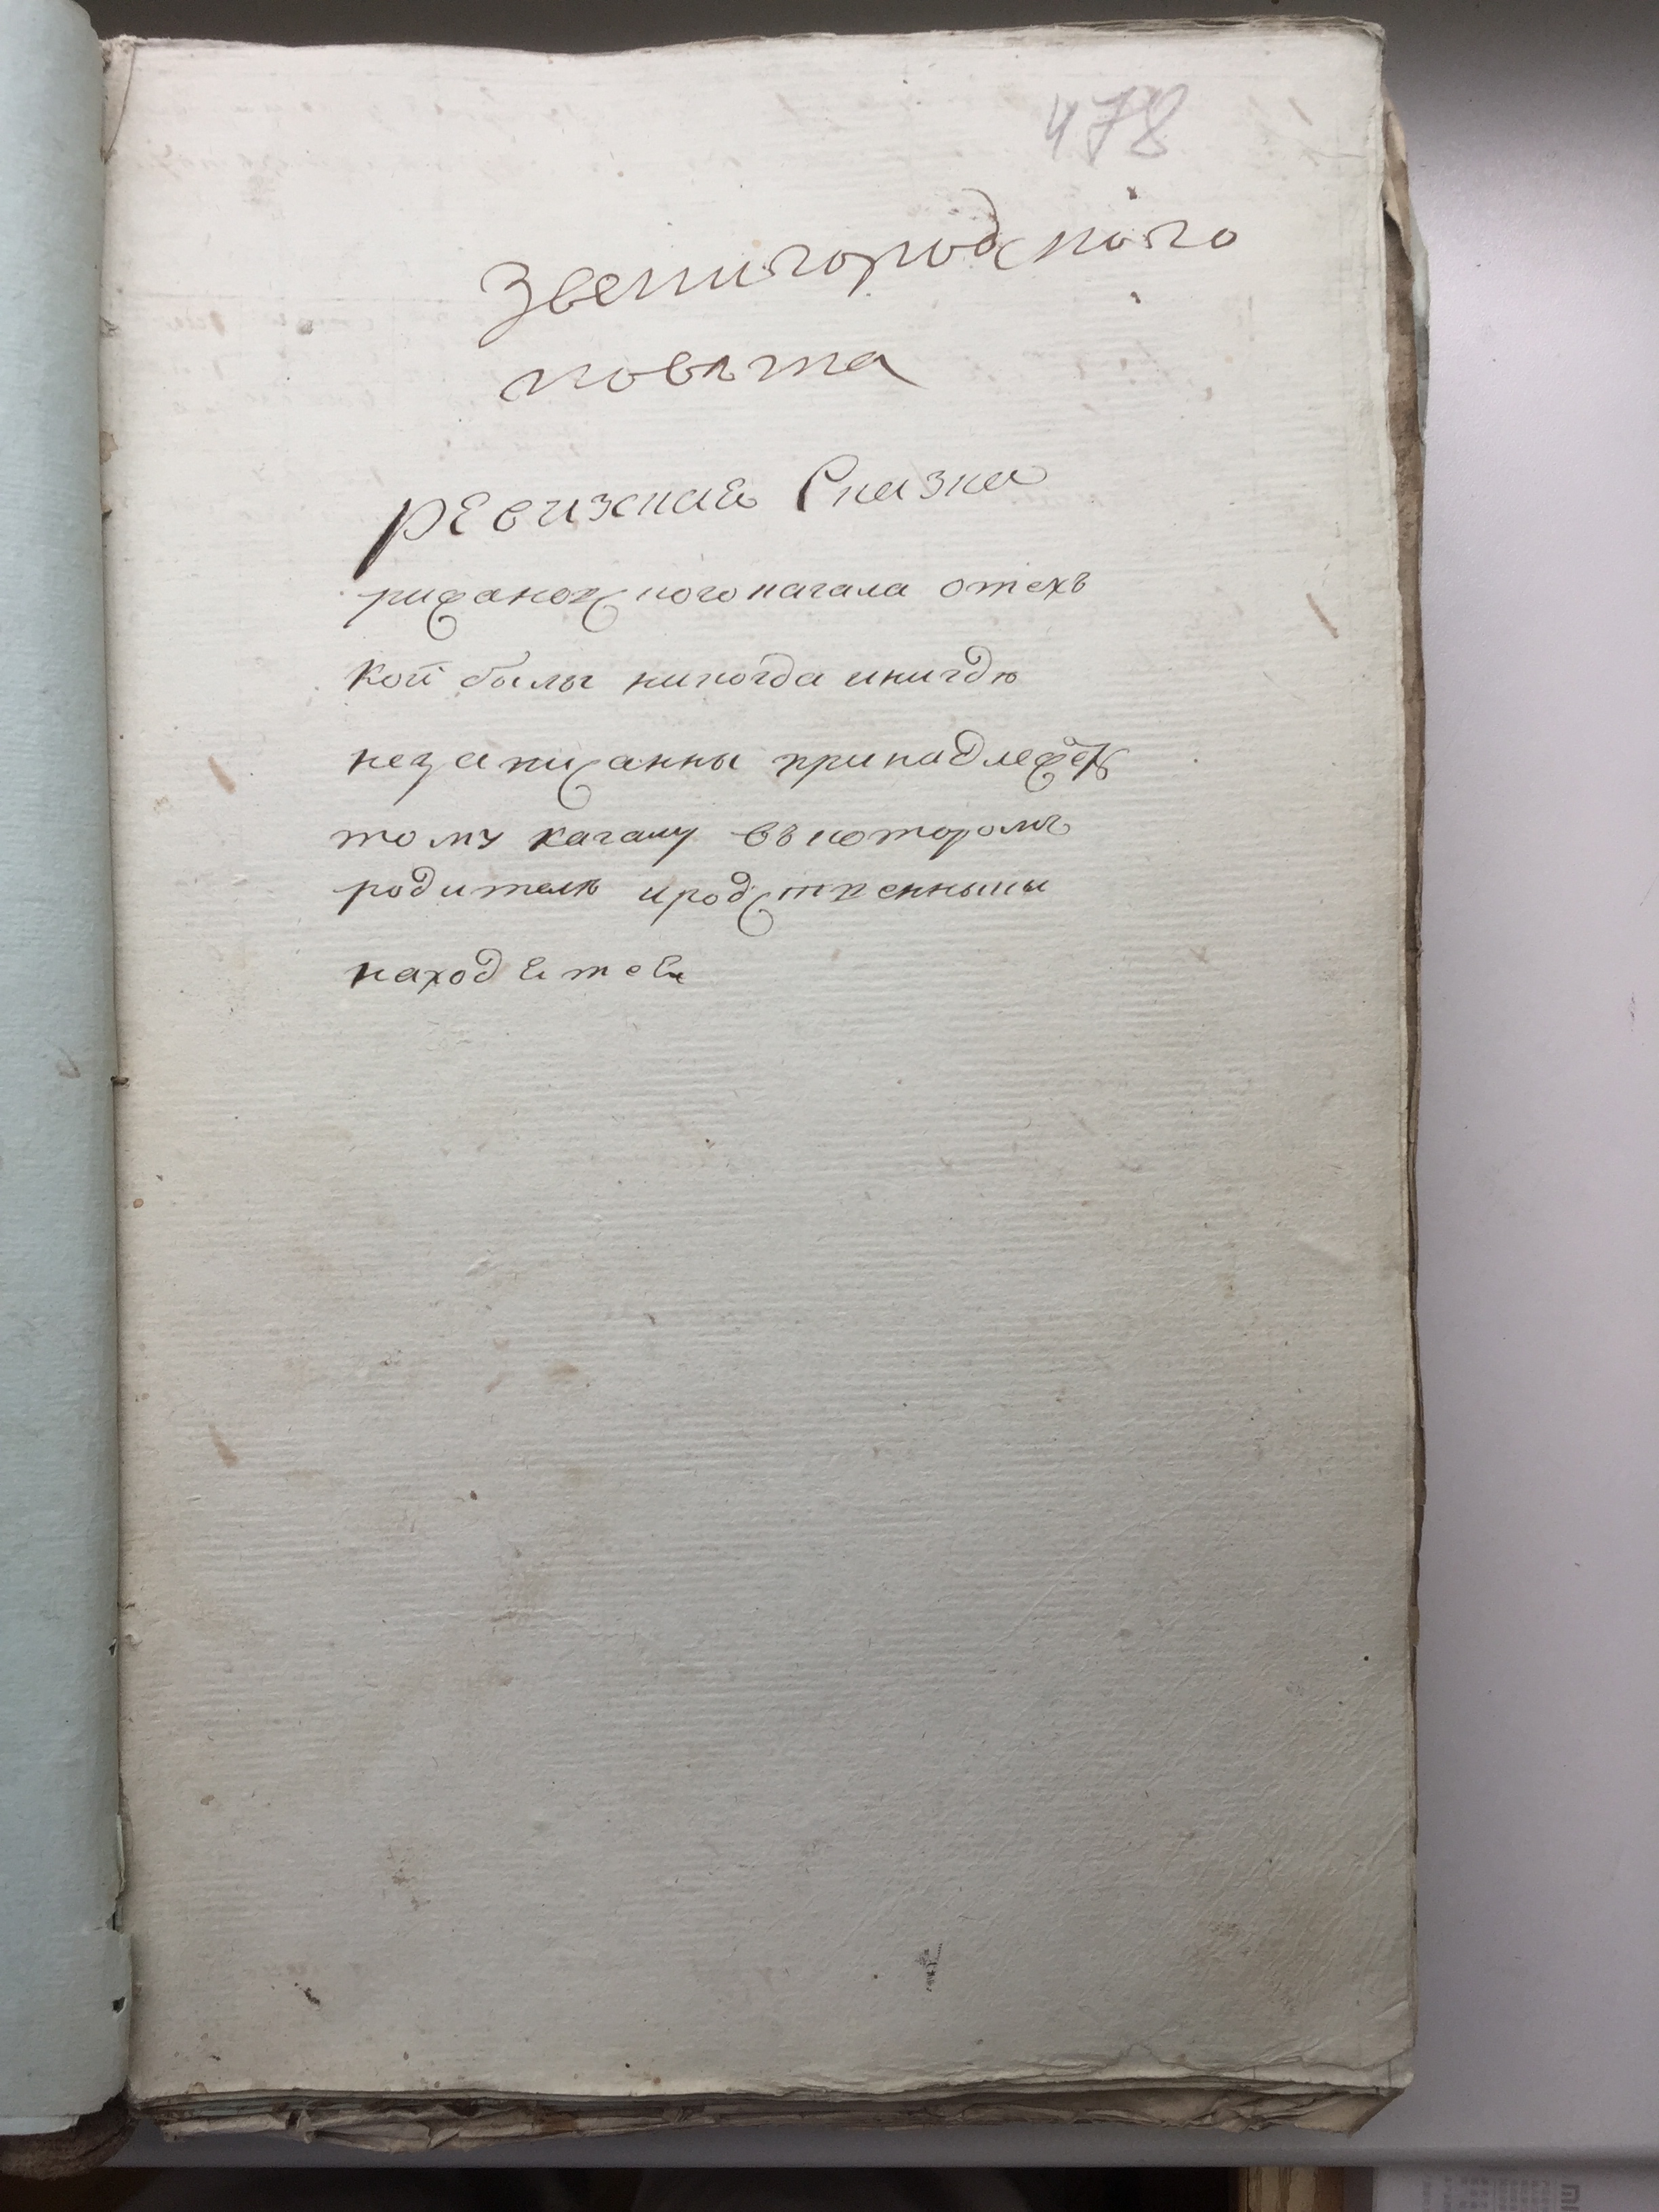 478
Звенигородского
повѣта
ревижская Сказка
рижановского кагала отехъ
кои былы никогда инигдѣ
незаписанны принадлежетъ
тому кагалу въ котором
родителѣ иродственныи
находятся